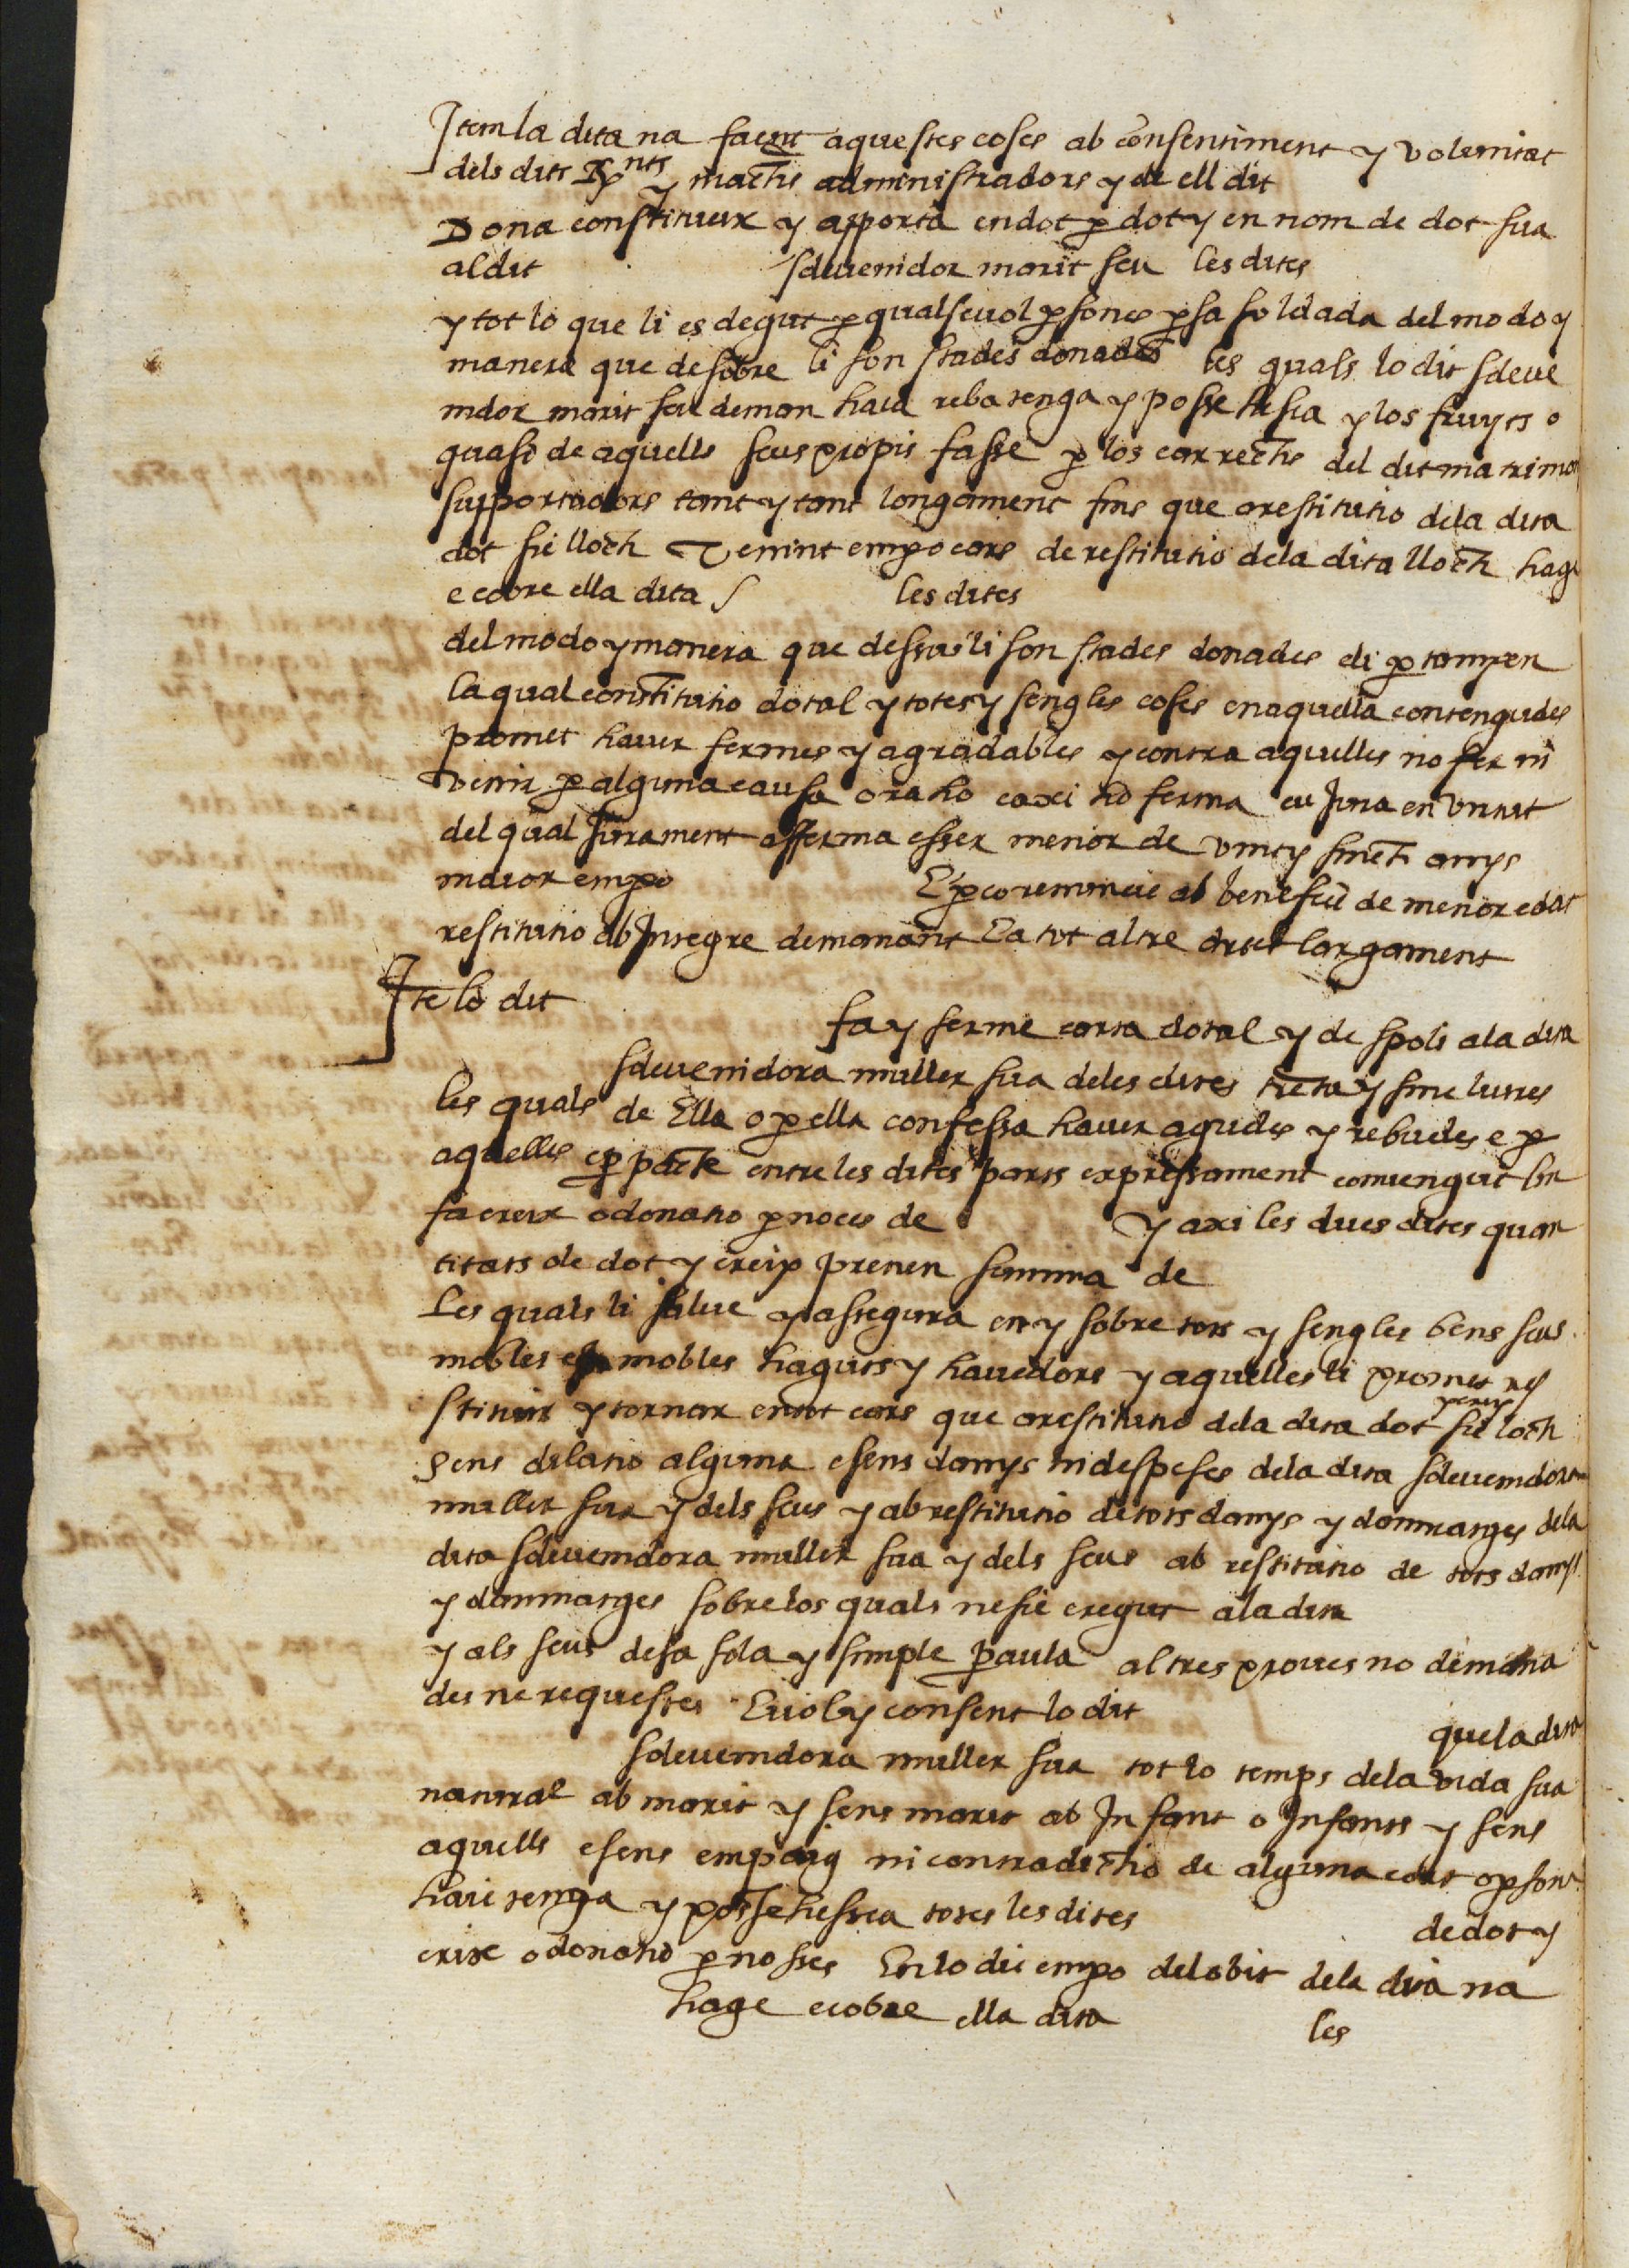 Item la dita na faent aquestes coses ab consentiment y voluntat
dels dits Rnts y mactis administradors y de ell dit
Dona constitueix y apporta en dot p dot y en nom de dot sua
al dit sdevenidor marit seu les dites
y tot lo que li es degut p qualsevol psones p sa soldada del modo y
manera que desobre li son stades donades les quals lo dit sdeve
nidor marit seu deman haia reba tenga y posse hisia y los fruyts o
guasi de aquells seus propis fasse p los carrechs del dit matrimon
supportadors tant y tant longament fins que a restitutio dela dita
dot sie lloch Venint empo cars de restitutio dela dita lloch hage
e cobre ella dita les dites
del modo y manera que dessus li son stades donades eli p tanyen
la qual constitutio dotal y totes y sengles coses en aquella contengudes
promet haver fermes y agradables y contra aquelles no fer ni
venir p alguna causa o raho e axi ho ferma eu Jura en virtut
del qual Jurament afferma esser menor de vint y sinch anys
maior empo E p co renuncie ab benefici de menor edat
restitutio ab Integre demanant E a tot altre dret largament
Ite lo dit
fa y ferme carta dotal y de spoli ala dita
sdevenidora muller sua deles dites treta y sinc lures
les quals de Ella o p ella confessa haver agudes y rebudes e p
aquelles e p pacte entre les dites parts expressament convengut lin
fa creix o donatio p noces de y axi les dues dites quan
titats de dot y creix prenen summa de
Les quals li salve y assegura en y sobre tots y sengles bens seus
mobles e Inmobles haguts y havedors y aquelles li promet res
stituir y tornar en tot cars que a restitutio dela dita dot y creix sie loch
Sens dilatio alguna e sens danys ni despeses dela dita sdevenidora
muller sua y dels seus y ab restitutio de tots danys y dannatges dela
dita sdevenidora muller sua y dels seus ab restitutio de tots danys
y dannatges sobre los quals ne sie cregut ala dita
y als seus de sa sola y simple paula altres proves no demana
des ne requestes E vol y consent lo dit
que la dita
sdevenidora muller sua tot lo temps dela vida sua
natural ab marit y sens marit ab Infant o Infants y sens
aquells e sens empaig ni contradictio de alguna cort o psona
haie tenga y possehessca totes les dites de dot y
creix o donatio p nosses En lo die empo del obit dela dita na
hage e cobre ella dita les